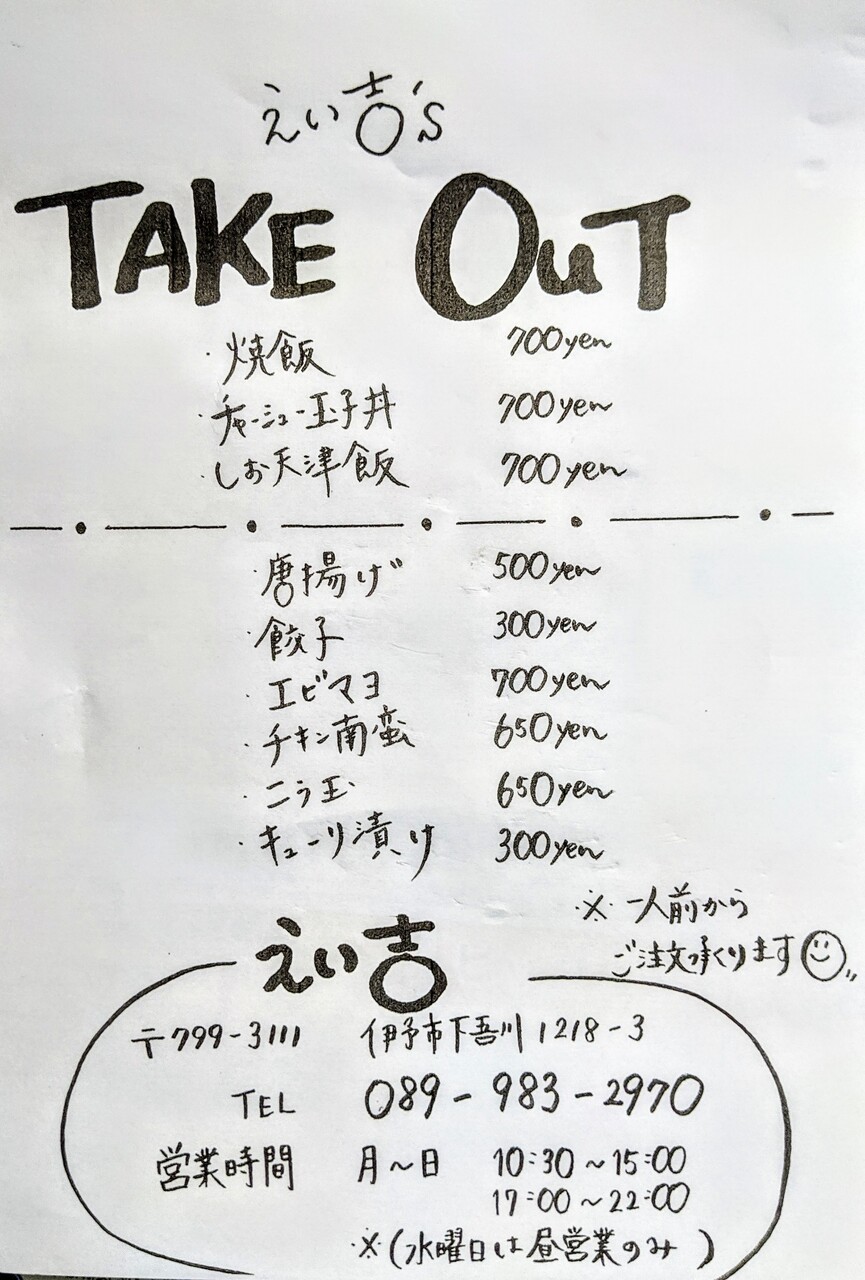 えい吉's
TAKE OuT
・焼飯 700yen
・チャーシュー玉子丼 700yen
・しお天津飯 700yen
・唐揚げ 500yen
・餃子 300yen
・エビマヨ 700yen
・チキン南蛮 650yen
・ニラ玉 650yen
・キューリ漬け 300yen
※一人前から
ご注文承ります
えい吉
〒799-3111 伊予市下吾川1218-3
TEL 089-983-2970
営業時間 月～日 10:30～15:00
17:00～22:00
※(水曜日は昼営業のみ)